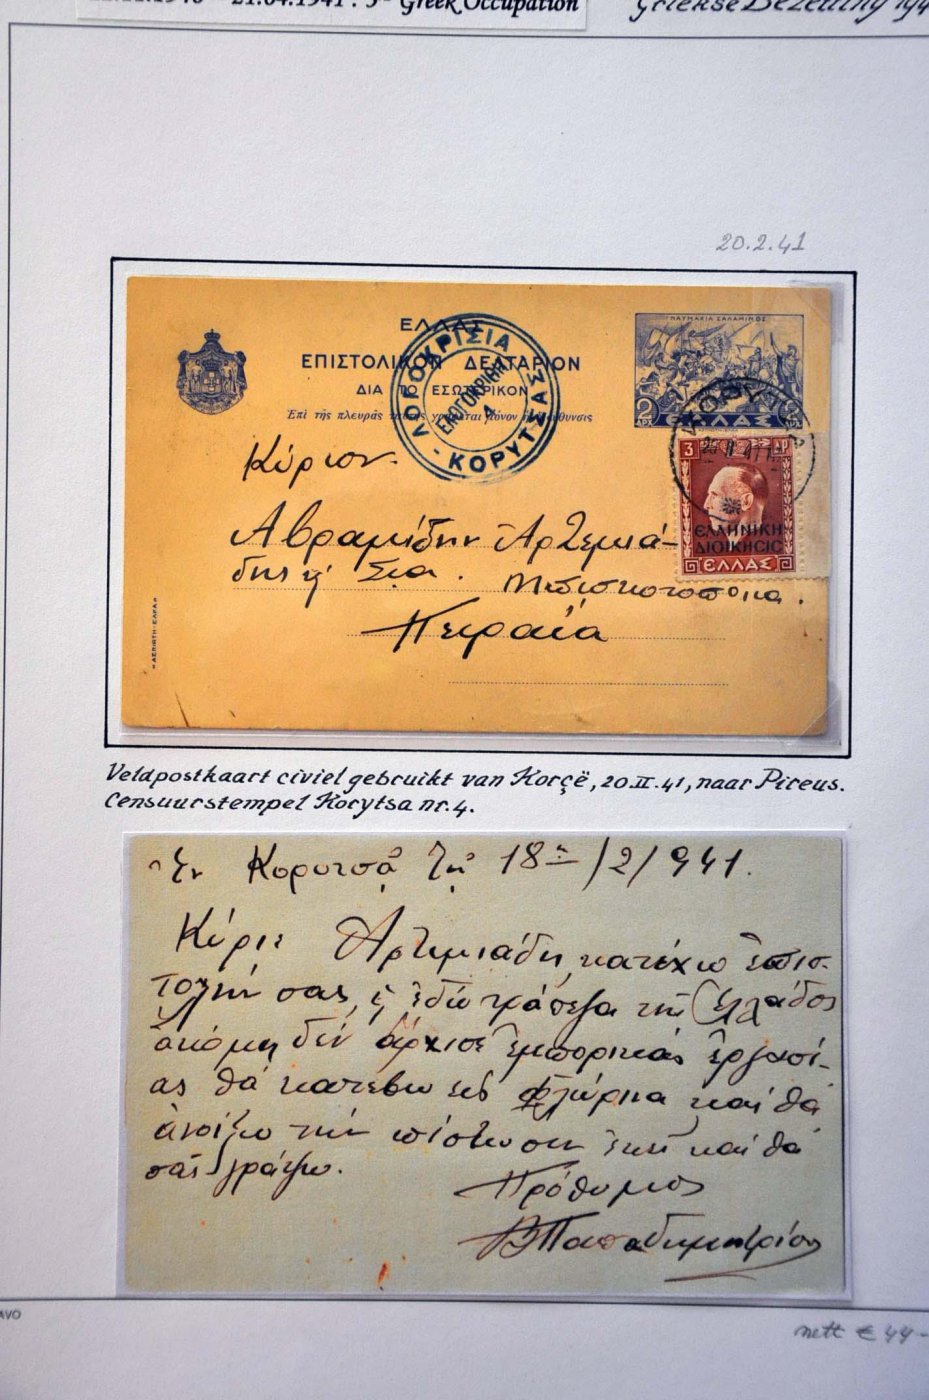 1940 - 21.04.1941 : 3 - Greek Occupation
Griekse Bezetting 194
20.2.41
ΕΛΛΑΣ
ΕΠΙΣΤΟΛΙΚΟΝ ΔΕΛΤΑΡΙΟΝ
ΔΙΑ ΤΟ ΕΣΩΤΕΡΙΚΟΝ
Ἐπὶ τῆς πλευρᾶς ταύτης γράφεται μόνον ἡ διεύθυνσις
ΛΟΓΟΚΡΙΣΙΑ
ΕΛΟΓΟΚΡΙΘΗ
4
- ΚΟΡΥΤΣΑΣ -
ΝΑΥΜΑΧΙΑ ΣΑΛΑΜΙΝΟΣ
2 ΔΡΧ ΕΛΛΑΣ 2 ΔΡΧ
3
ΕΛΛΗΝΙΚΗ
ΔΙΟΙΚΗCΙC
ΕΛΛΑΣ
Κύριον.
Αβραμίδην Αρτεμιά-
δης & Σια.
Πειραιᾶ
«ΑΣΠΙΩΤΗ-ΕΛΚΑ»
Veldpostkaart civiel gebruikt van Korçë, 20.II.41, naar Pireus.
Censuurstempel Korytsa nr. 4.
Ἐν Κορυτσᾷ τῇ 18ῃ/2/941.
Κύριε Ἀρτεμιάδη, κατέχω ἐπισ-
τολήν σας, ἡ ἐδῶ τράπεζα τῆς Ἑλλάδος
ἀκόμη δέν ἄρχισε ἐμπορικάς ἐργασί-
ας θά κατέβω εἰς Φλώρινα καί θά
ἀνοίξω τήν πίστωσιν ἐκεῖ καί θά
σᾶς γράψω.
Πρόθυμος
Παπαδημητρίου
AVO
nett € 44-